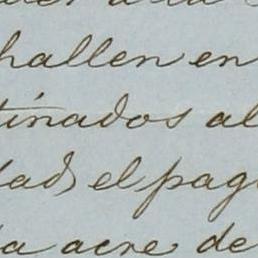 hallen en
tinados al
dad, el pag
la acre de